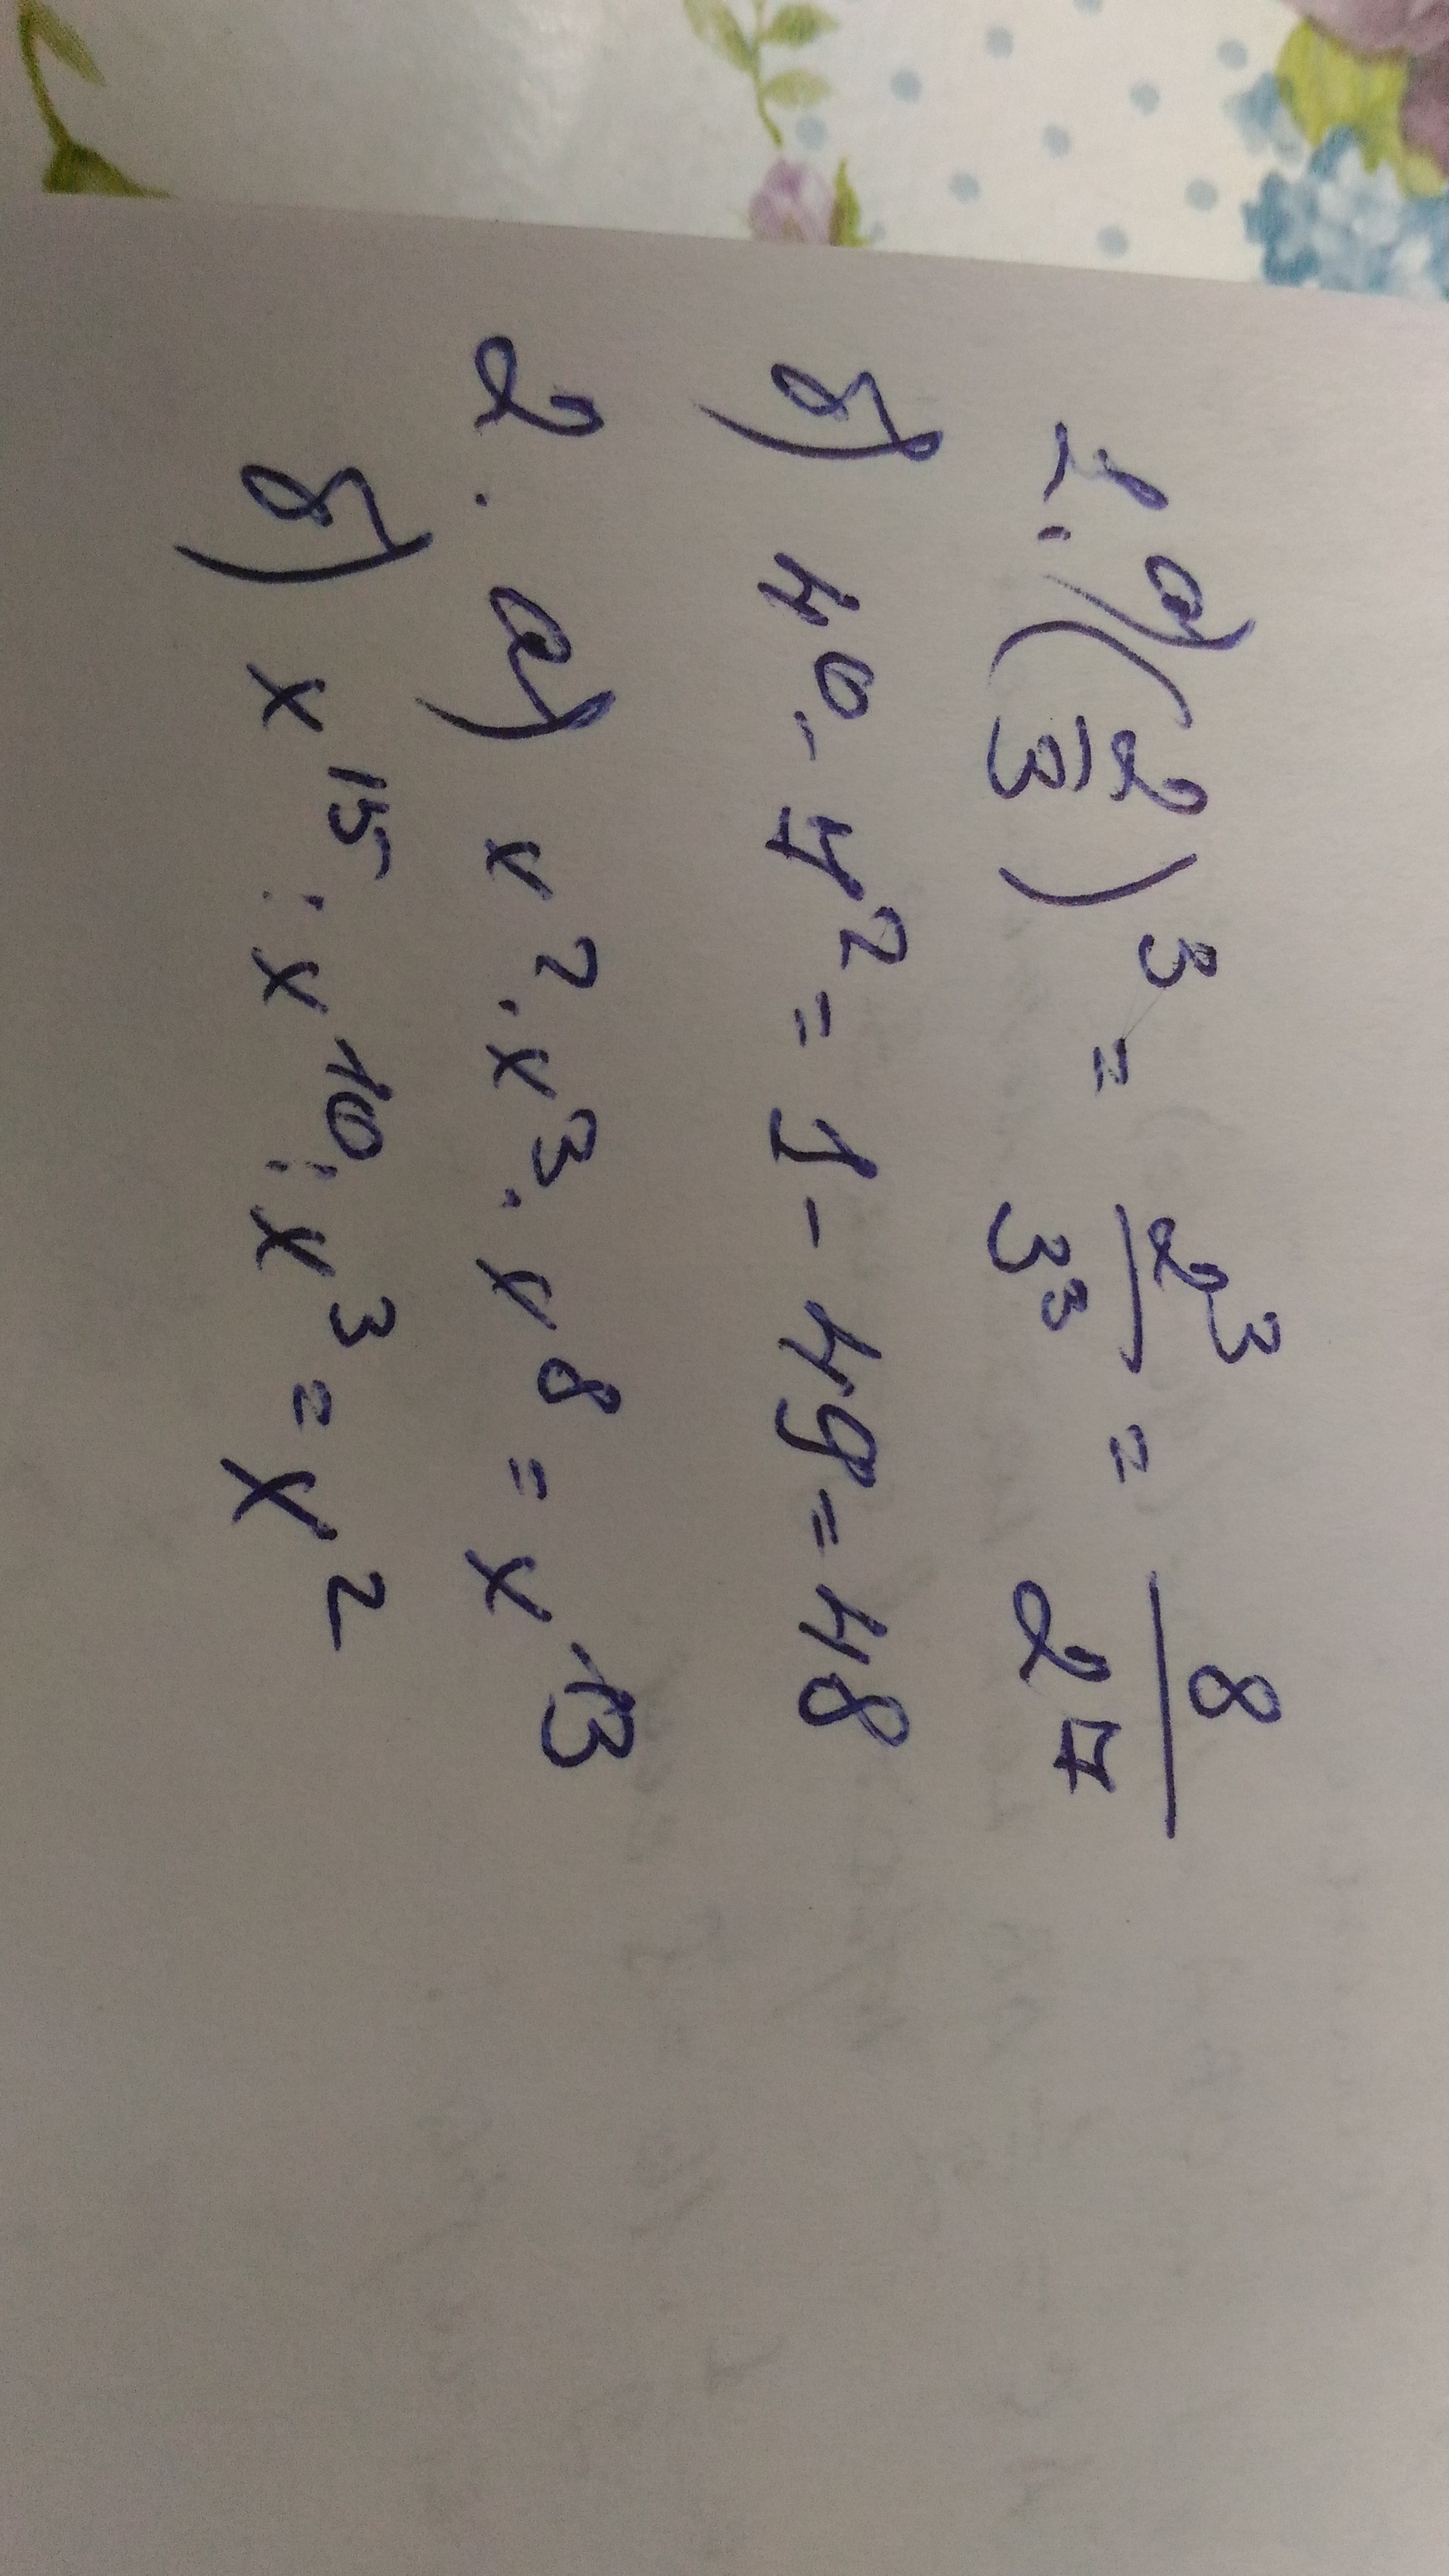 1. а) (2/3)³ = 2³/3³ = 8/27
б) 4⁰ - 7² = 1 - 49 = 48
2. а) x² · x³ · x⁸ = x¹³
б) x¹⁵ : x¹⁰ : x³ = x²